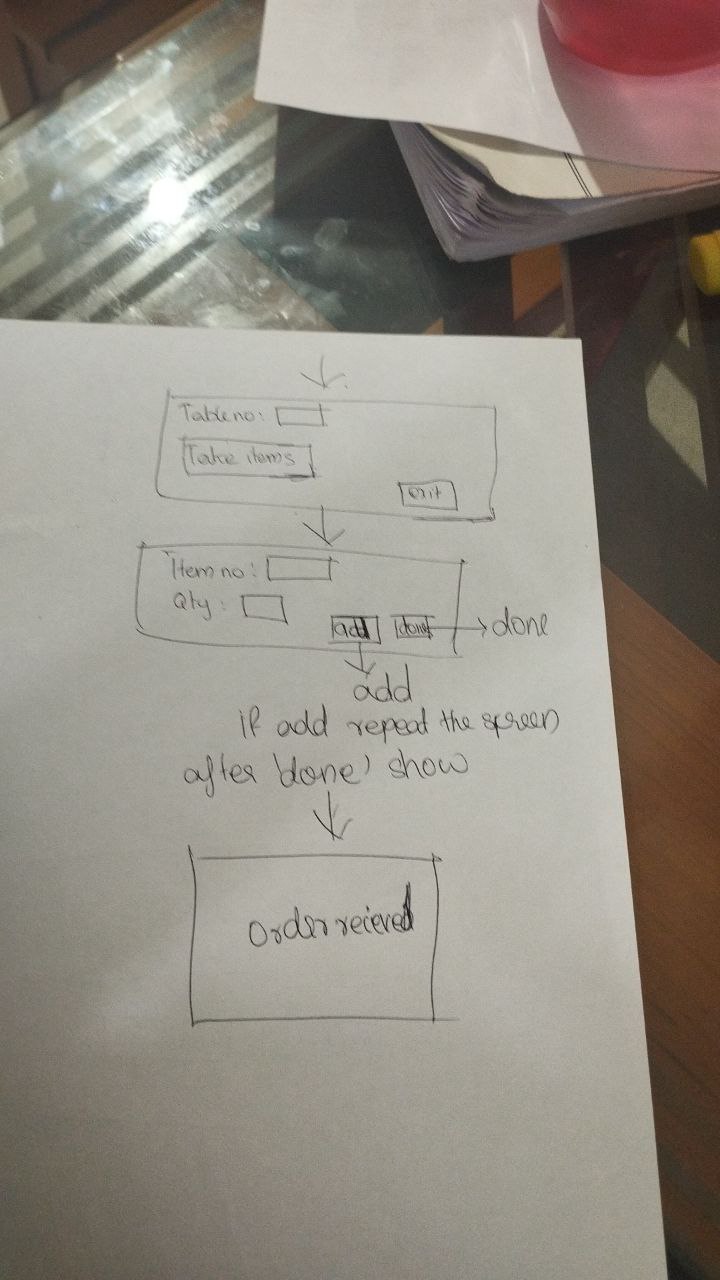 Table no:
Take items
exit
Item no:
Qty:
add done done
add
if add repeat the screen
after 'done' show
Order recieved